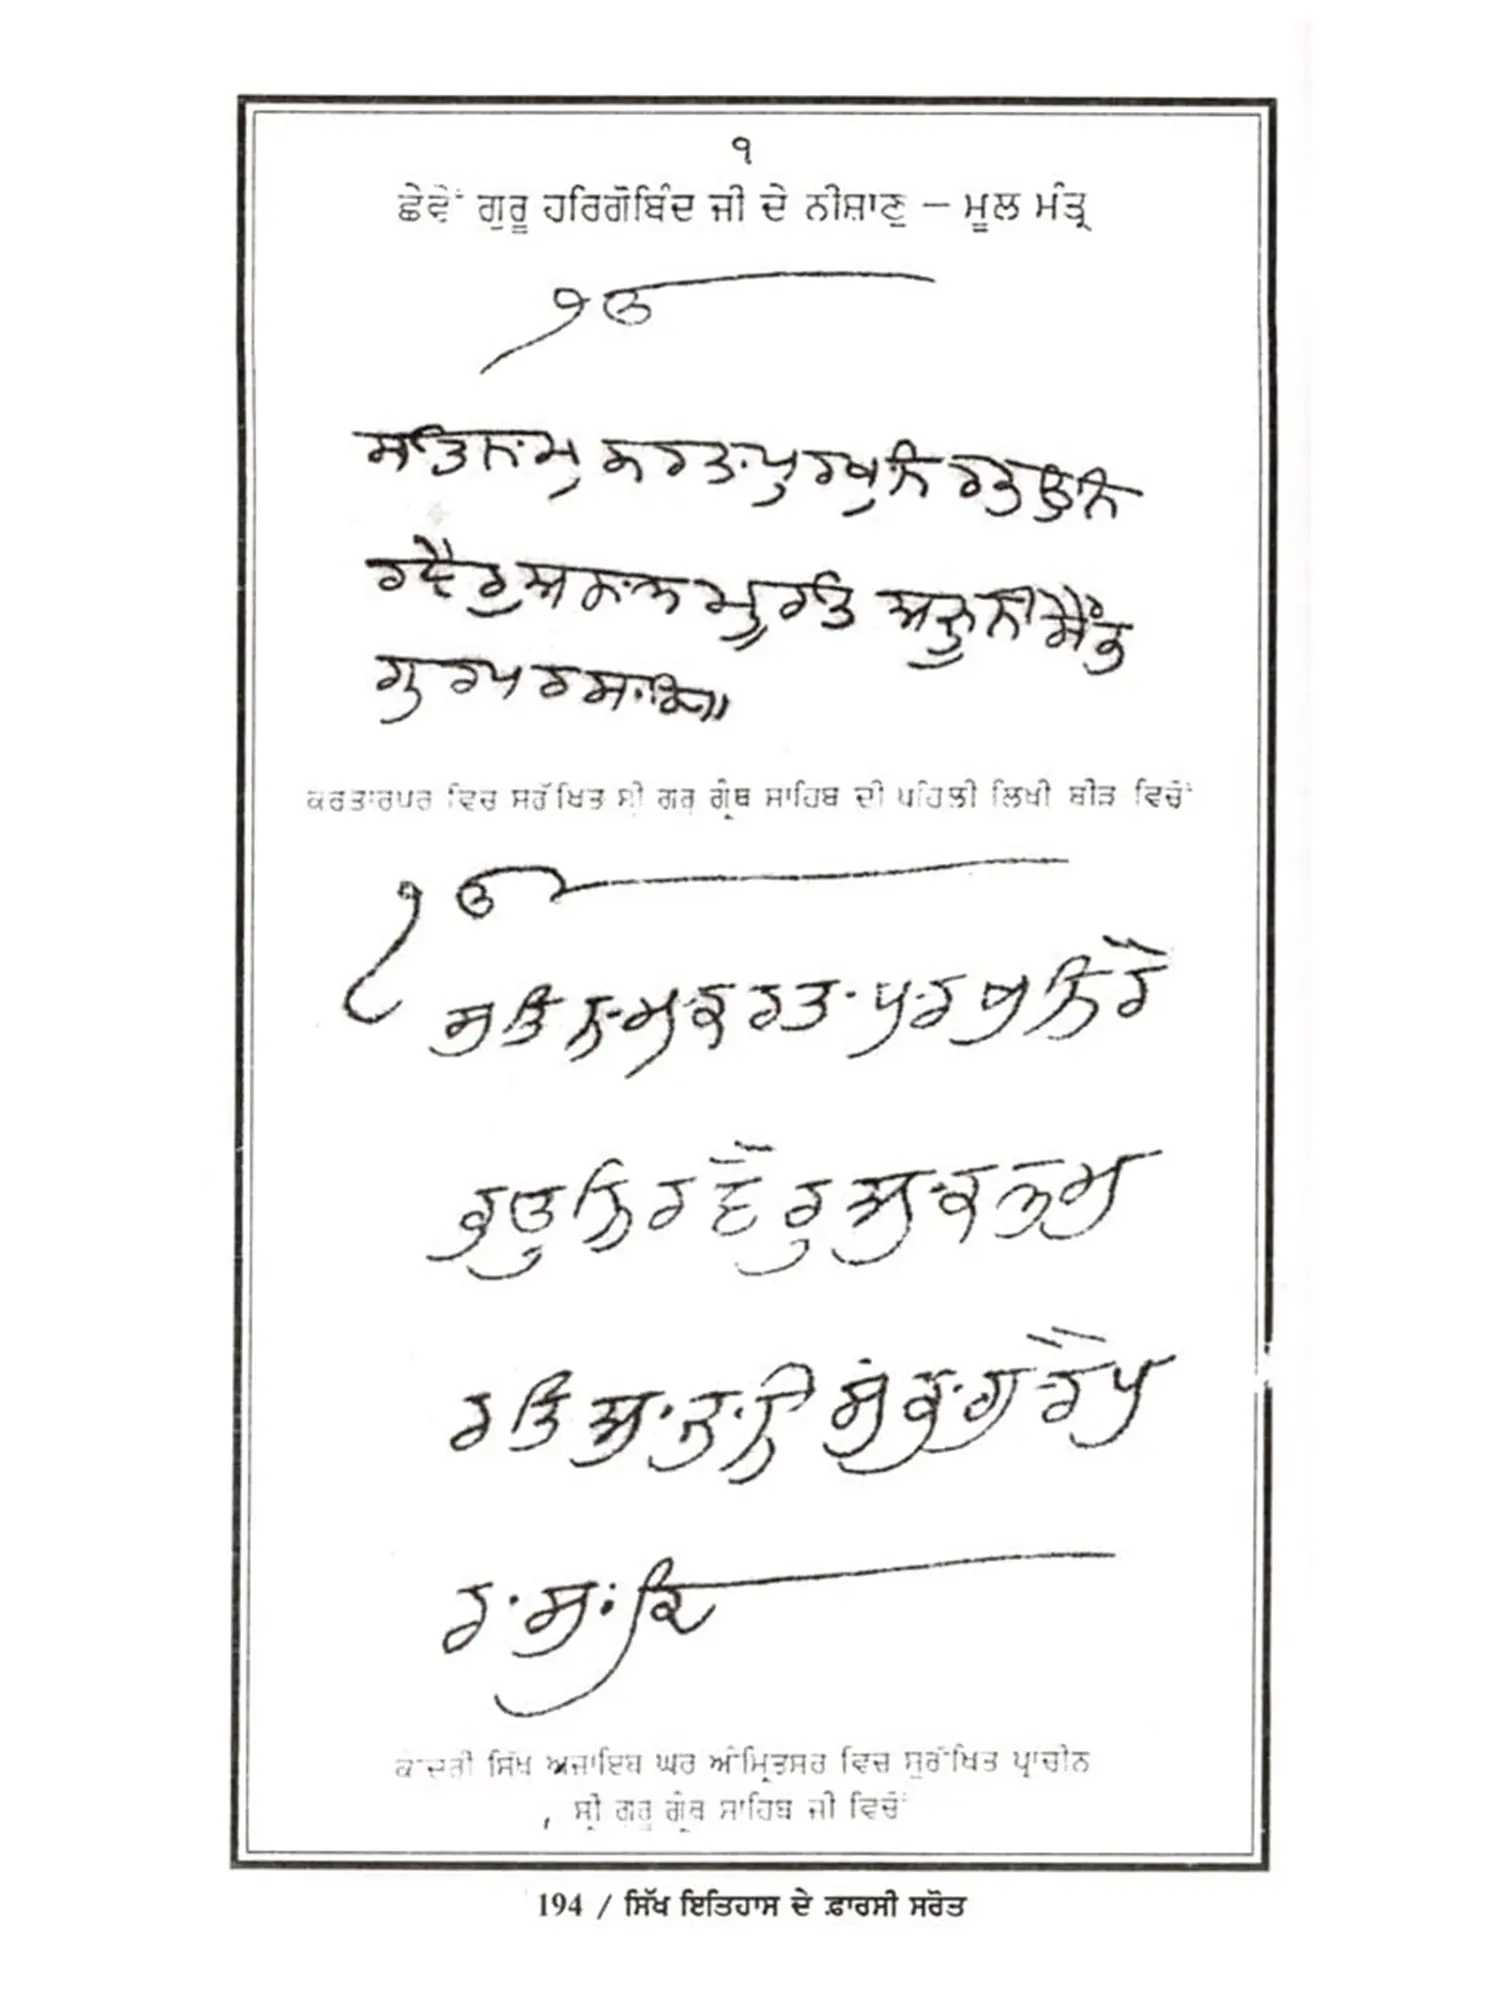 ੧
ਛੇਵੇਂ ਗੁਰੂ ਹਰਿਗੋਬਿੰਦ ਜੀ ਦੇ ਨੀਸ਼ਾਣੁ – ਮੂਲ ਮੰਤ੍ਰ
ੴ
ਸਤਿਨਾਮੁ ਕਰਤਾਪੁਰਖੁਨਿਰਭਉਨਿ
ਰਵੈਰੁਅਕਾਲਮੂਰਤਿ ਅਜੂਨੀਸੈਭੰ
ਗੁਰਪਰਸਾਦਿ॥
ਕਰਤਾਰਪਰ ਵਿਚ ਸਰੱਖਿਤ ਸ੍ਰੀ ਗਰ ਗ੍ਰੰਥ ਸਾਹਿਬ ਦੀ ਪਹਿਲੀ ਲਿਖੀ ਬੀੜ ਵਿਚੋਂ
ੴ
ਸਤਿਨਾਮੁਕਰਤਾਪੁਰਖੁ
ਨਿਰਵੈਰੁਅਕਾਲਮੂ
ਰਤਿਅਜੂਨੀ
ਕੇਂਦਰੀ ਸਿੱਖ ਅਜਾਇਬ ਘਰ ਅੰਮ੍ਰਿਤਸਰ ਵਿਚ ਸੁਰੱਖਿਤ ਪ੍ਰਾਚੀਨ
ਸ੍ਰੀ ਗਰੂ ਗ੍ਰੰਥ ਸਾਹਿਬ ਜੀ ਵਿਚੋਂ
194 / ਸਿੱਖ ਇਤਿਹਾਸ ਦੇ ਫ਼ਾਰਸੀ ਸਰੋਤ